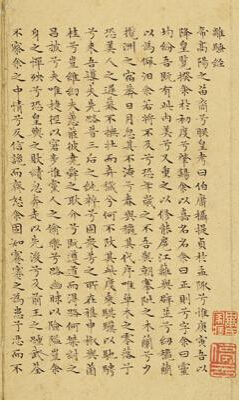 離騷經
帝高陽之苗裔兮朕皇考曰伯庸攝提貞於孟陬兮惟庚寅吾以
降皇覽揆余於初度兮肇錫余以嘉名名余曰正則兮字余曰靈
均紛吾既有此內美兮又重之以修能扈江蘺與辟芷兮紉秋蘭
以為佩汨余若將不及兮恐年歲之不吾與朝搴阰之木蘭兮夕
攬洲之宿莽日月忽其不淹兮春與秋其代序惟草木之零落兮
恐美人之遲暮不撫壯而棄穢兮何不改其此度乘騏驥以馳騁
兮來吾導夫先路昔三后之純粹兮固衆芳之所在雜申椒與菌
桂兮豈維紉夫蕙茝彼堯舜之耿介兮既遵道而得路何桀紂之
昌披兮夫唯捷徑以窘步惟黨人之偷樂兮路幽昧以險隘豈余
身之憚殃兮恐皇輿之敗績忽奔走以先後兮及前王之踵武荃
不察余之中情兮反信讒而齌怒余固知謇謇之為患兮忍而不